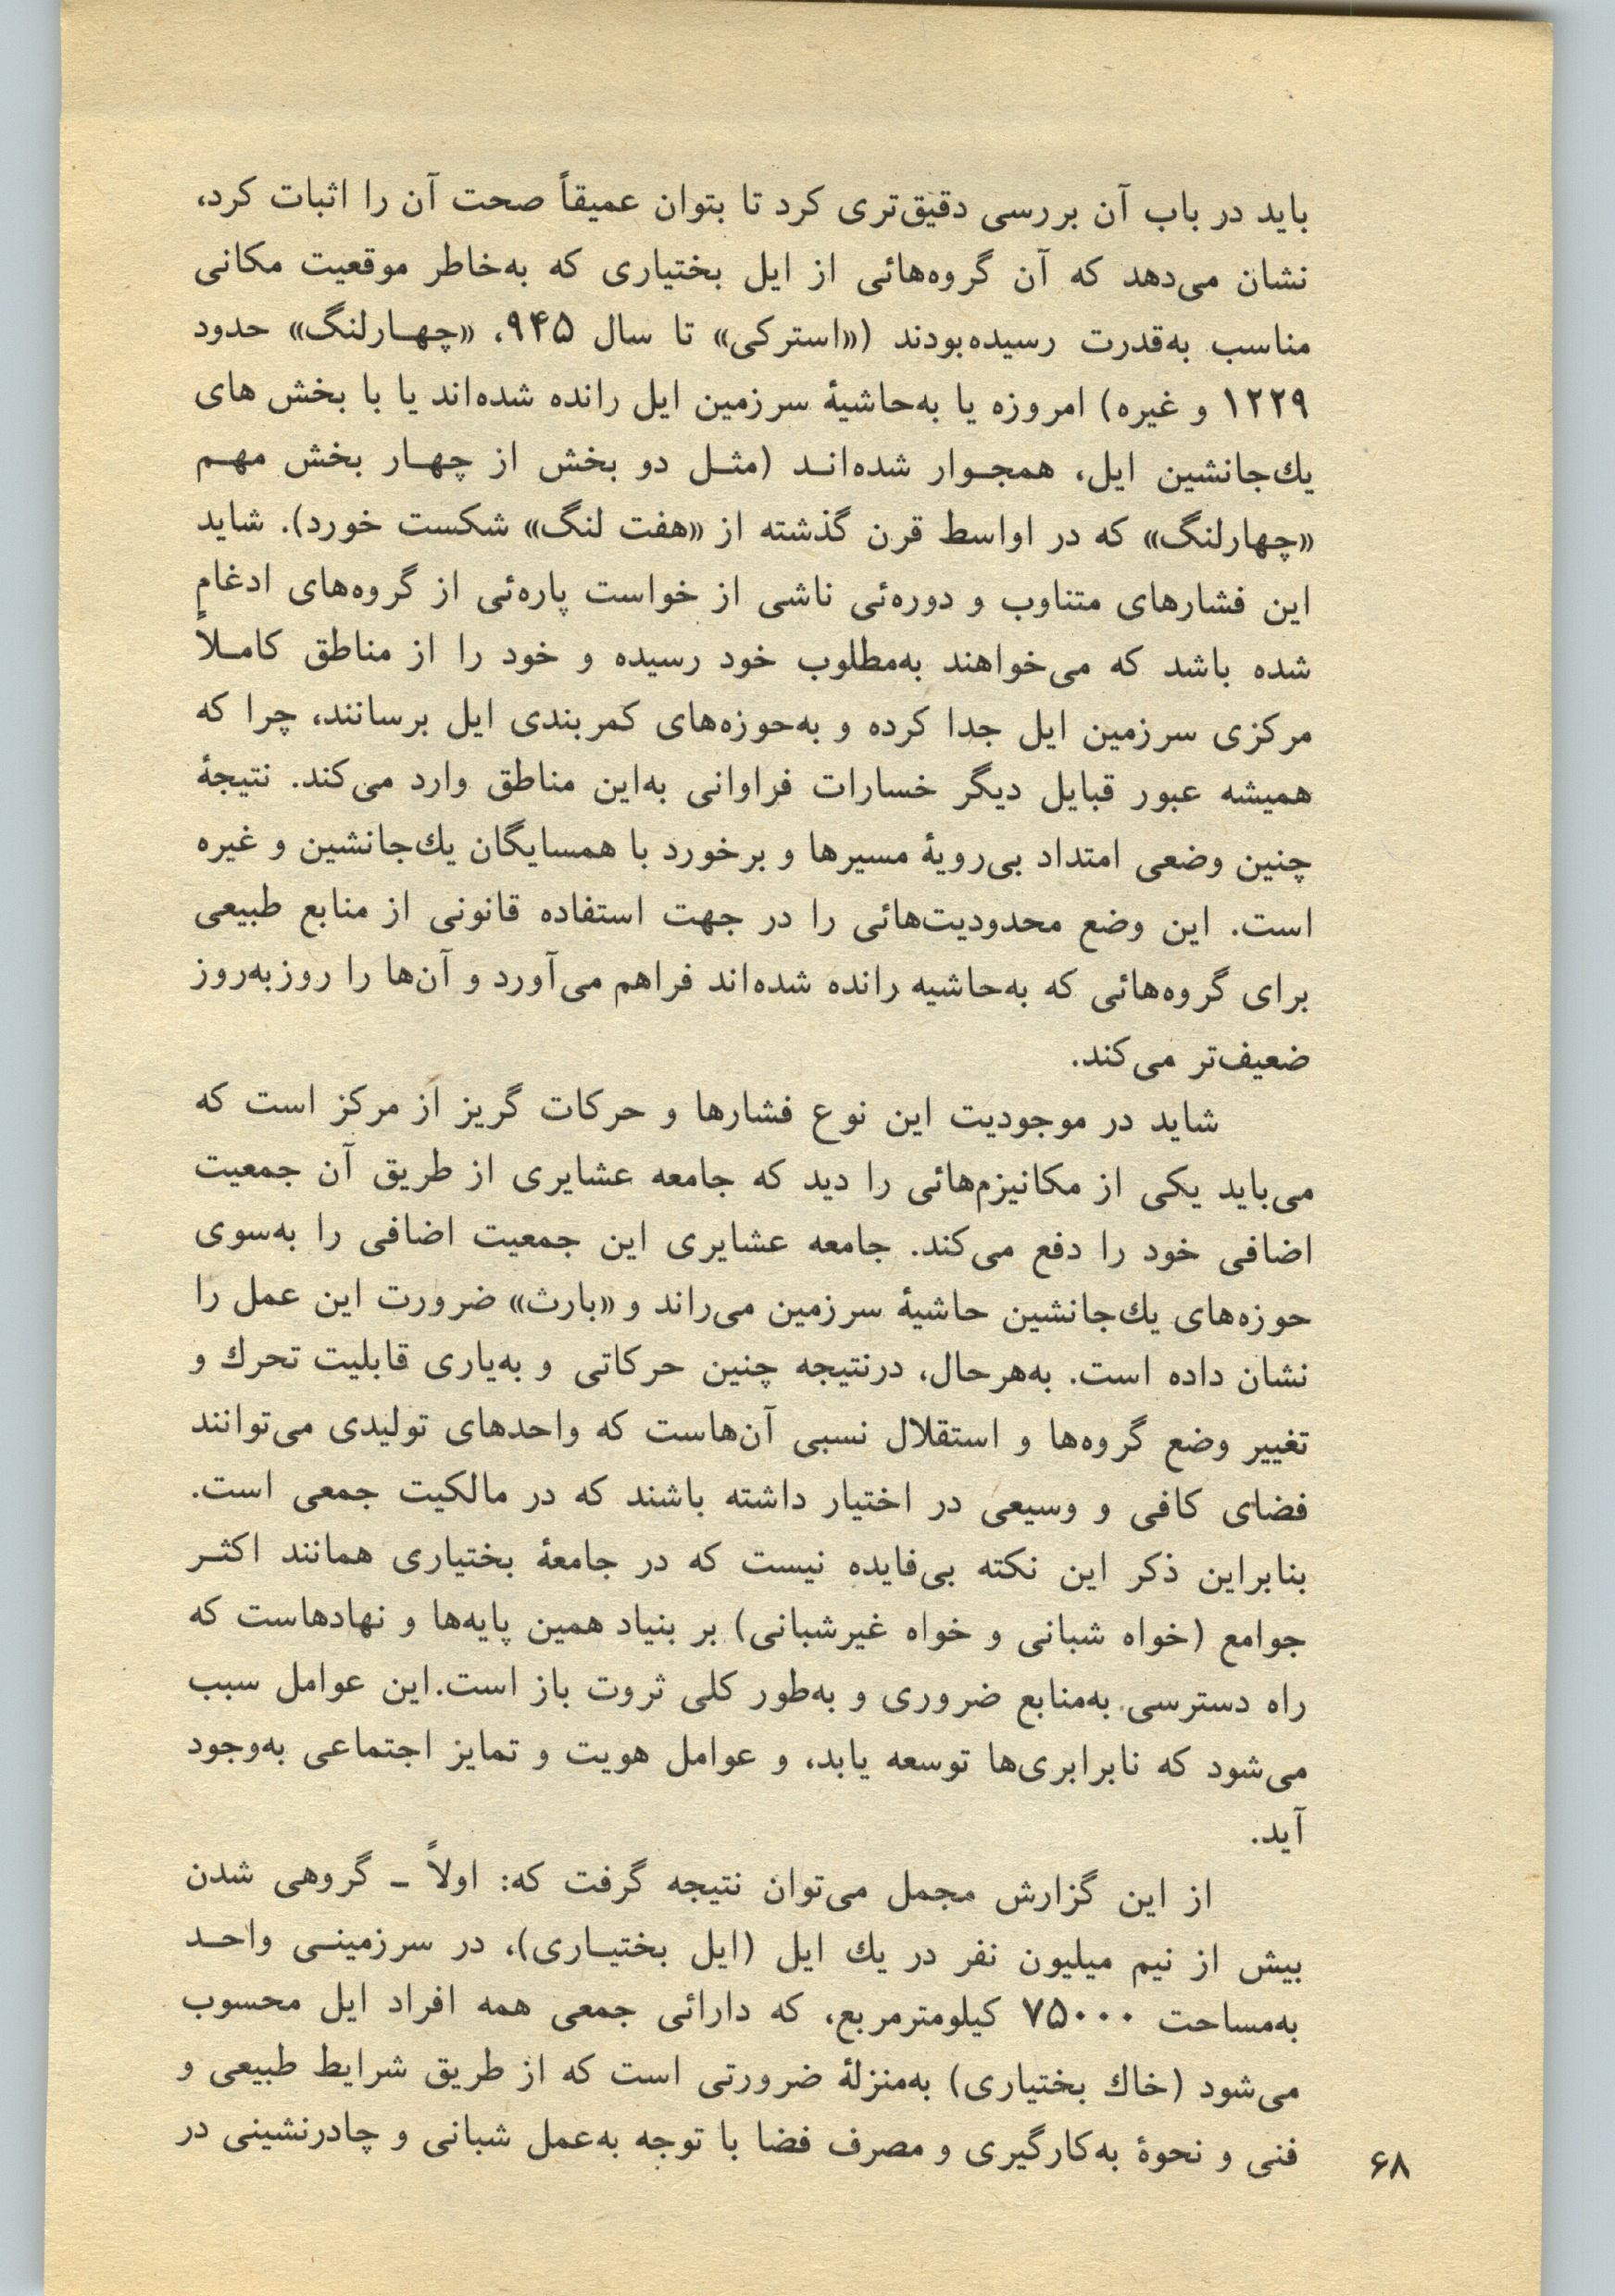 باید در باب آن بررسی دقیق‌تری کرد تا بتوان عمیقاً صحت آن را اثبات کرد،
نشان می‌دهد که آن گروه‌هائی از ایل بختیاری که به‌خاطر موقعیت مکانی
مناسب به‌قدرت رسیده‌بودند («استرکی» تا سال ۹۴۵، «چهـارلنگ» حدود
۱۲۲۹ و غیره) امروزه یا به‌حاشیهٔ سرزمین ایل رانده شده‌اند یا با بخش های
یك‌جانشین ایل، همجـوار شده‌انـد (مثـل دو بخش از چهـار بخش مهـم
«چهارلنگ» که در اواسط قرن گذشته از «هفت لنگ» شکست خورد). شاید
این فشارهای متناوب و دوره‌ئی ناشی از خواست پاره‌ئی از گروه‌های ادغام
شده باشد که می‌خواهند به‌مطلوب خود رسیده و خود را از مناطق کامـلاً
مرکزی سرزمین ایل جدا کرده و به‌حوزه‌های کمربندی ایل برسانند، چرا که
همیشه عبور قبایل دیگر خسارات فراوانی به‌این مناطق وارد می‌کند. نتیجهٔ
چنین وضعی امتداد بی‌رویهٔ مسیرها و برخورد با همسایگان یك‌جانشین و غیره
است. این وضع محدودیت‌هائی را در جهت استفاده قانونی از منابع طبیعی
برای گروه‌هائی که به‌حاشیه رانده شده‌اند فراهم می‌آورد و آن‌ها را روزبه‌روز
ضعیف‌تر می‌کند.
شاید در موجودیت این نوع فشارها و حرکات گریز از مرکز است که
می‌باید یکی از مکانیزم‌هائی را دید که جامعه عشایری از طریق آن جمعیت
اضافی خود را دفع می‌کند. جامعه عشایری این جمعیت اضافی را به‌سوی
حوزه‌های یك‌جانشین حاشیهٔ سرزمین می‌راند و «بارث» ضرورت این عمل را
نشان داده است. به‌هرحال، درنتیجه چنین حرکاتی و به‌یاری قابلیت تحرك و
تغییر وضع گروه‌ها و استقلال نسبی آن‌هاست که واحدهای تولیدی می‌توانند
فضای کافی و وسیعی در اختیار داشته باشند که در مالکیت جمعی است.
بنابراین ذکر این نکته بی‌فایده نیست که در جامعهٔ بختیاری همانند اکثـر
جوامع (خواه شبانی و خواه غیرشبانی) بر بنیاد همین پایه‌ها و نهادهاست که
راه دسترسی به‌منابع ضروری و به‌طور کلی ثروت باز است.این عوامل سبب
می‌شود که نابرابری‌ها توسعه یابد، و عوامل هویت و تمایز اجتماعی به‌وجود
آید.
از این گزارش مجمل می‌توان نتیجه گرفت که: اولاً ـ گروهی شدن
بیش از نیم میلیون نفر در یك ایل (ایل بختیـاری)، در سرزمینـی واحـد
به‌مساحت ۷۵۰۰۰ کیلومترمربع، که دارائی جمعی همه افراد ایل محسوب
می‌شود (خاك بختیاری) به‌منزلهٔ ضرورتی است که از طریق شرایط طبیعی و
فنی و نحوهٔ به‌کارگیری و مصرف فضا با توجه به‌عمل شبانی و چادرنشینی در
۶۸